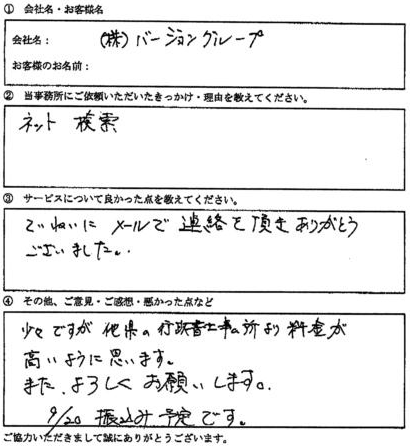 ① 会社名・お客様名
会社名： (株)バージョングループ
お客様のお名前：
② 当事務所にご依頼いただいたきっかけ・理由を教えてください。
ネット 検索
③ サービスについて良かった点を教えてください。
ていねいに メールで 連絡を頂きありがとう
ございました。
④ その他、ご意見・ご感想・悪かった点など
少々ですが 他県の行政書士事ム所より料金が
高いように思います。
また、よろしくお願いします。
9/20 振込み予定です。
ご協力いただきまして誠にありがとうございます。